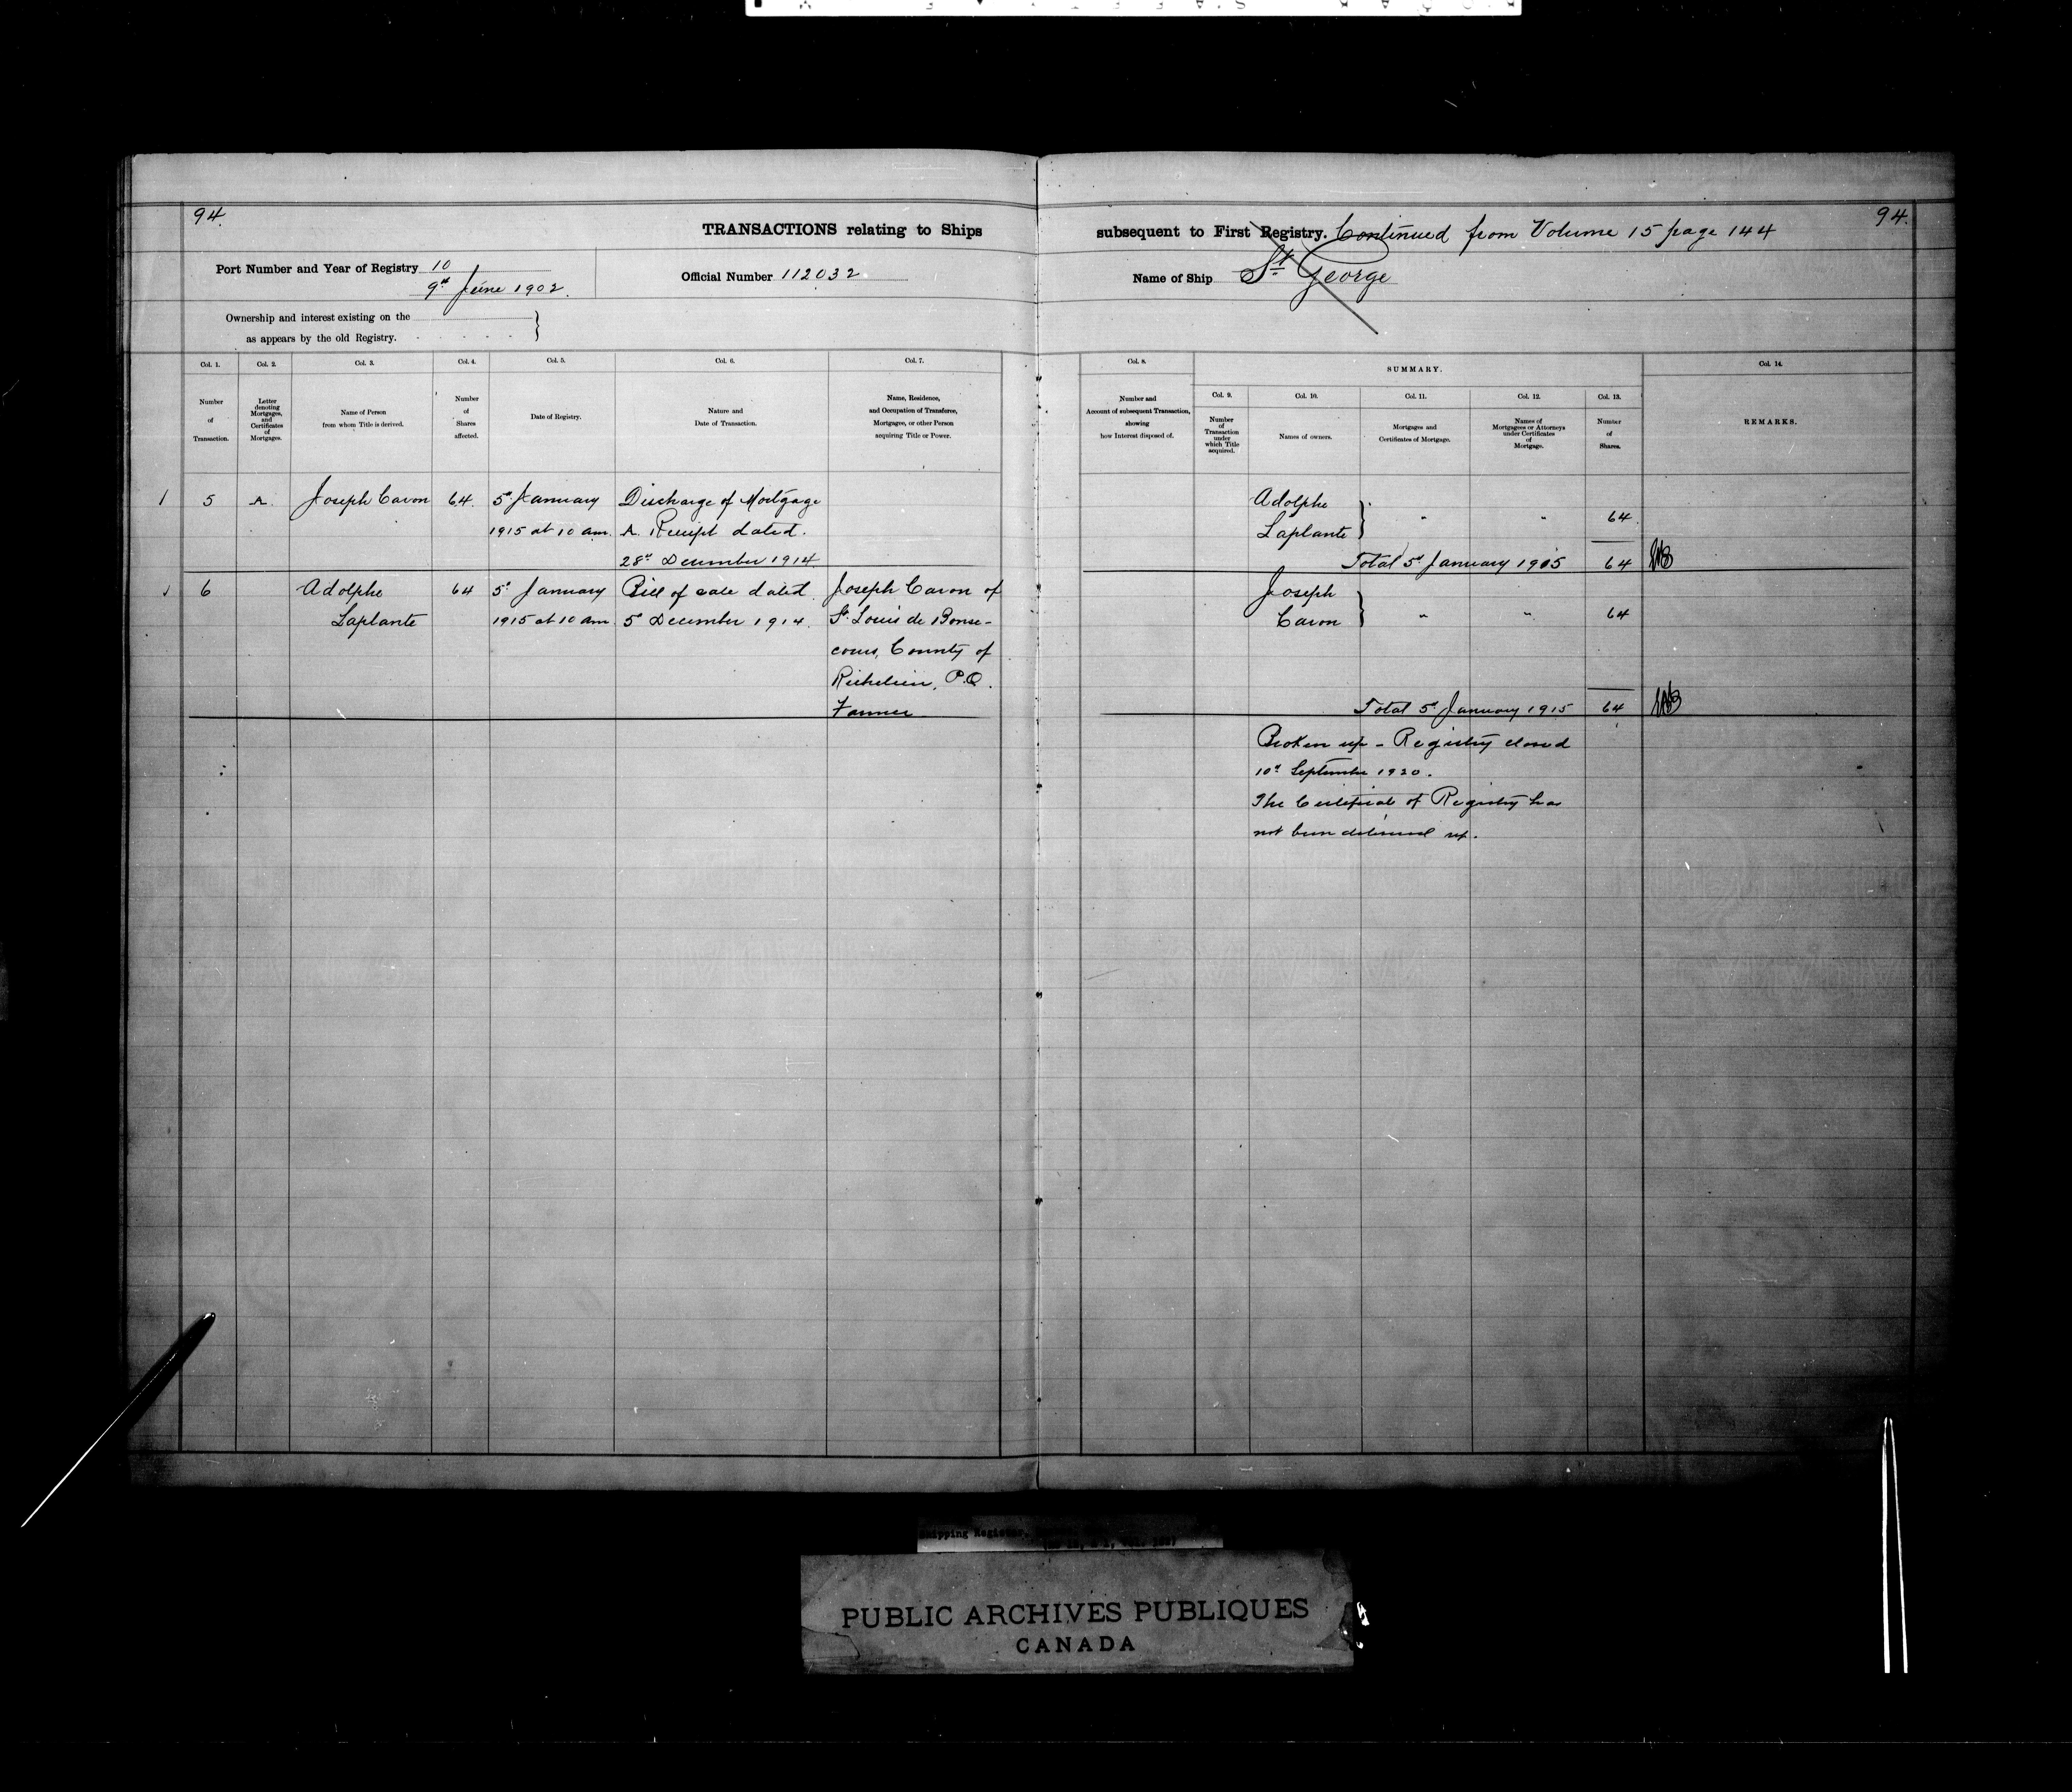 94.
TRANSACTIONS relating to Ships
Port Number and Year of Registry 10
9th June 1902.
Official Number 112032
Ownership and interest existing on the
as appears by the old Registry.
Col. 1.
Number
of
Transaction.
Col. 2.
Letter
denoting
Mortgages,
and
Certificates
of
Mortgages.
Col. 3.
Name of Person
from whom Title is derived.
Col. 4.
Number
of
Shares
affected.
Col. 5.
Date of Registry.
Col. 6.
Nature and
Date of Transaction.
Col. 7.
Name, Residence,
and Occupation of Transferee,
Mortgagee, or other Person
acquiring Title or Power.
5 A. Joseph Caron 64. 5th January Discharge of Mortgage
1915 at 10 am. A. Receipt dated.
28th December 1914
6 Adolphe 64 5th January Bill of sale dated Joseph Caron of
Laplante 1915 at 10 am 5th December 1914. St. Louis de Bonse-
cours, County of
Richelieu, P.Q.
Farmer
94.
subsequent to First Registry. Continued from Volume 15 page 144
Name of Ship St George
Col. 8.
Number and
Account of subsequent Transaction,
showing
how Interest disposed of.
SUMMARY.
Col. 9.
Number
of
Transaction
under
which Title
acquired.
Col. 10.
Names of owners.
Col. 11.
Mortgages and
Certificates of Mortgage.
Col. 12.
Names of
Mortgagees or Attorneys
under Certificates
of
Mortgage.
Col. 13.
Number
of
Shares.
Col. 14.
REMARKS.
Adolphe
Laplante } " " 64
Total 5th January 1915 64
Joseph
Caron } " " 64
Total 5th January 1915 64
Broken up - Registry closed
10th September 1920.
The Certificate of Registry has
not been delivered up.
Shipping Register
PUBLIC ARCHIVES PUBLIQUES
CANADA